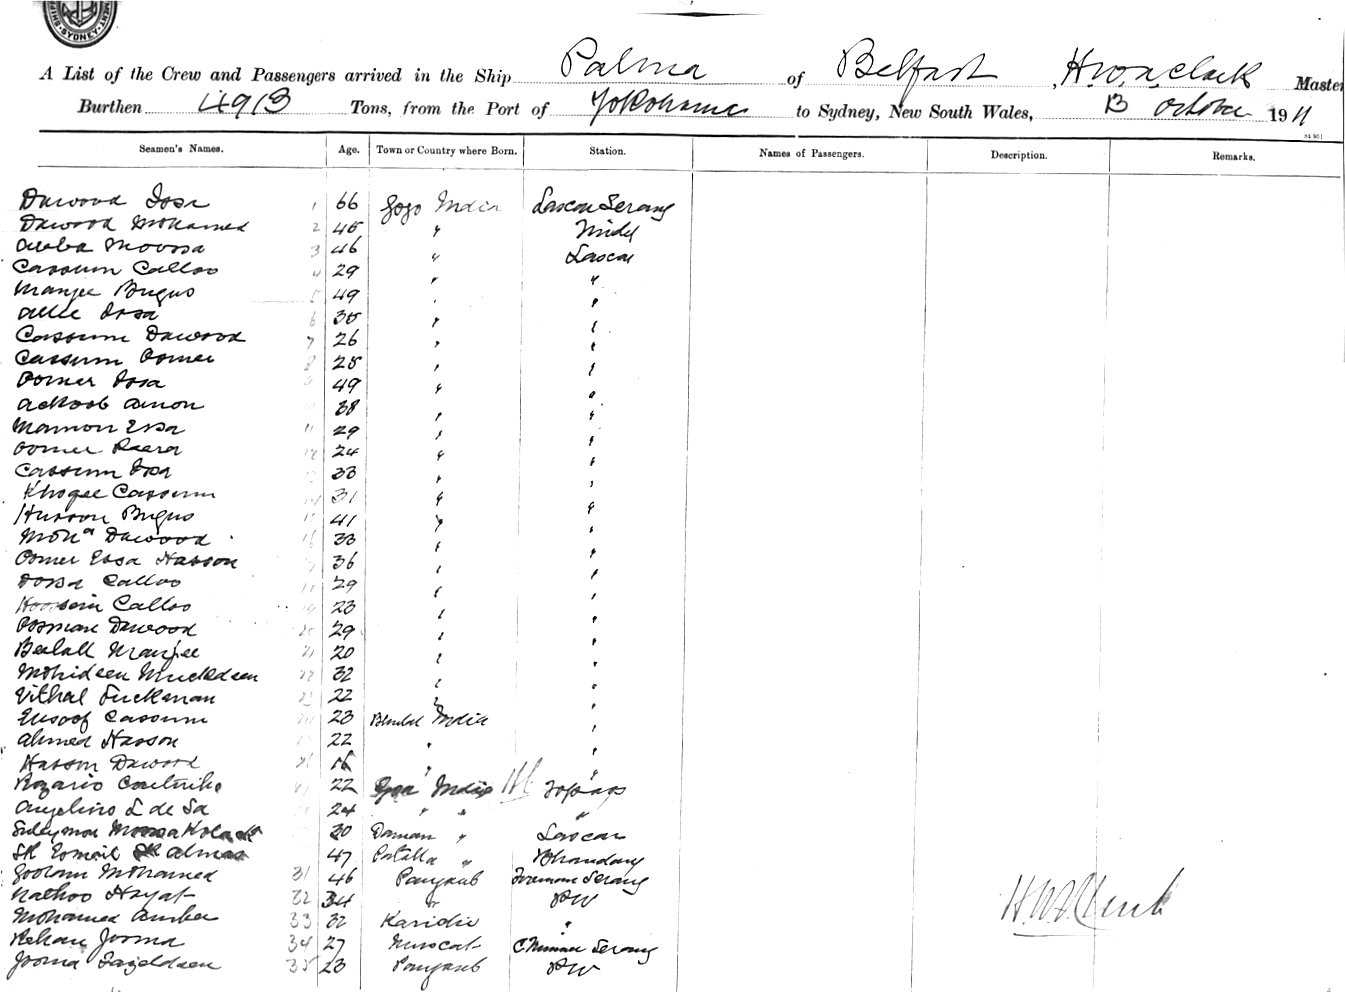 SYDNEY
A List of the Crew and Passengers arrived in the Ship Palma of Belfast, Master
Burthen 4913 Tons, from the Port of Yokohama to Sydney, New South Wales, 13 October 1911
Seamen's Names. Age. Town or Country where Born. Station. Names of Passengers. Description. Remarks.
Dawood Issa 1 66 Gogo India Lascar Serang
Dawood Mohamed 2 45 " Tindel
Moossa 3 46 " Lascar
Cassum Calloo 4 29 " "
Manjee Bugus 5 49 " "
Allie Issa 6 35 " "
Cassum Dawood 7 26 " "
Cassum Oomer 8 25 " "
Oomer Issa 49 " "
Ackoob Amon 38 " "
Mamon Essa 11 29 " "
Oomer 12 24 " "
Cassum Issa 33 " "
Khogee Cassum 31 " "
Hasson Bugus 41 " "
Moha Dawood 16 33 " "
Oomer Essa Hasson 36 " "
Dossa Calloo 29 " "
Hoosein Calloo 23 " "
Oosman Dawood 29 " "
Beelall Manjee 21 20 " "
Mohideen Muckdeen 22 32 " "
Vithal 22 " "
Eusoof Cassum 23 India "
Ahmed Hasson 22 " "
Hasson Dawood " "
Rozario 22 Goa India Topass
Angelino L de Sa 24 " " "
Suleyman Moosa 30 Daman " Lascar
SK Esmail 47 " Bhandary
Goolam Mohamed 31 46 Panjaub Fireman Serang
Nathoo Hayat 32 34 " "
Mohamed Amber 33 32 "
Rehan Jooma 34 27 Muscat Serang
Jooma 35 23 Panjaub